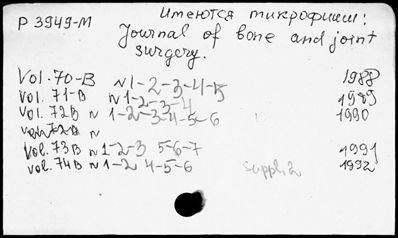 Имеются микрофиши:
P 3949-M
Journal of bone and joint
surgery.
Vol. 70-B N 1-2-3-4-5 1988
Vol. 71-B N 1-2-3-4 1989
Vol. 72B N 1-2-3-4-5-6 1990
Vol. 72B N
Vol. 73B N 1-2-3 5-6-7 1991
Vol. 74B N 1-2 4-5-6 suppl. 2 1992